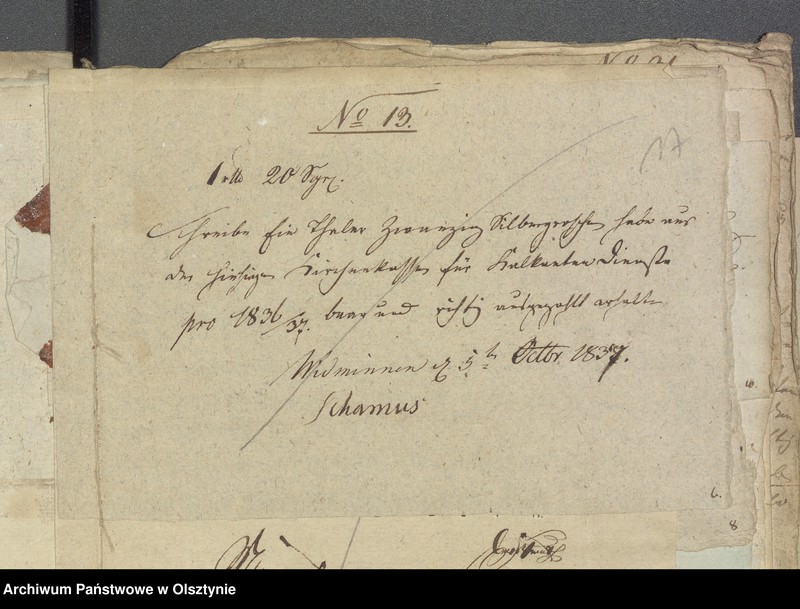 No 13.
17
1 rtl 20 Sgr.
Schreibe Ein Thaler Zwanzig Silbergroschen habe aus
der hiesigen Kirchenkasse für Kalkanten Dienste
pro 1836/37. baar und richtig ausgezahlt erhalten
Widminnen d 5t Octbr. 1837.
Schamus
6.
8
Archiwum Państwowe w Olsztynie